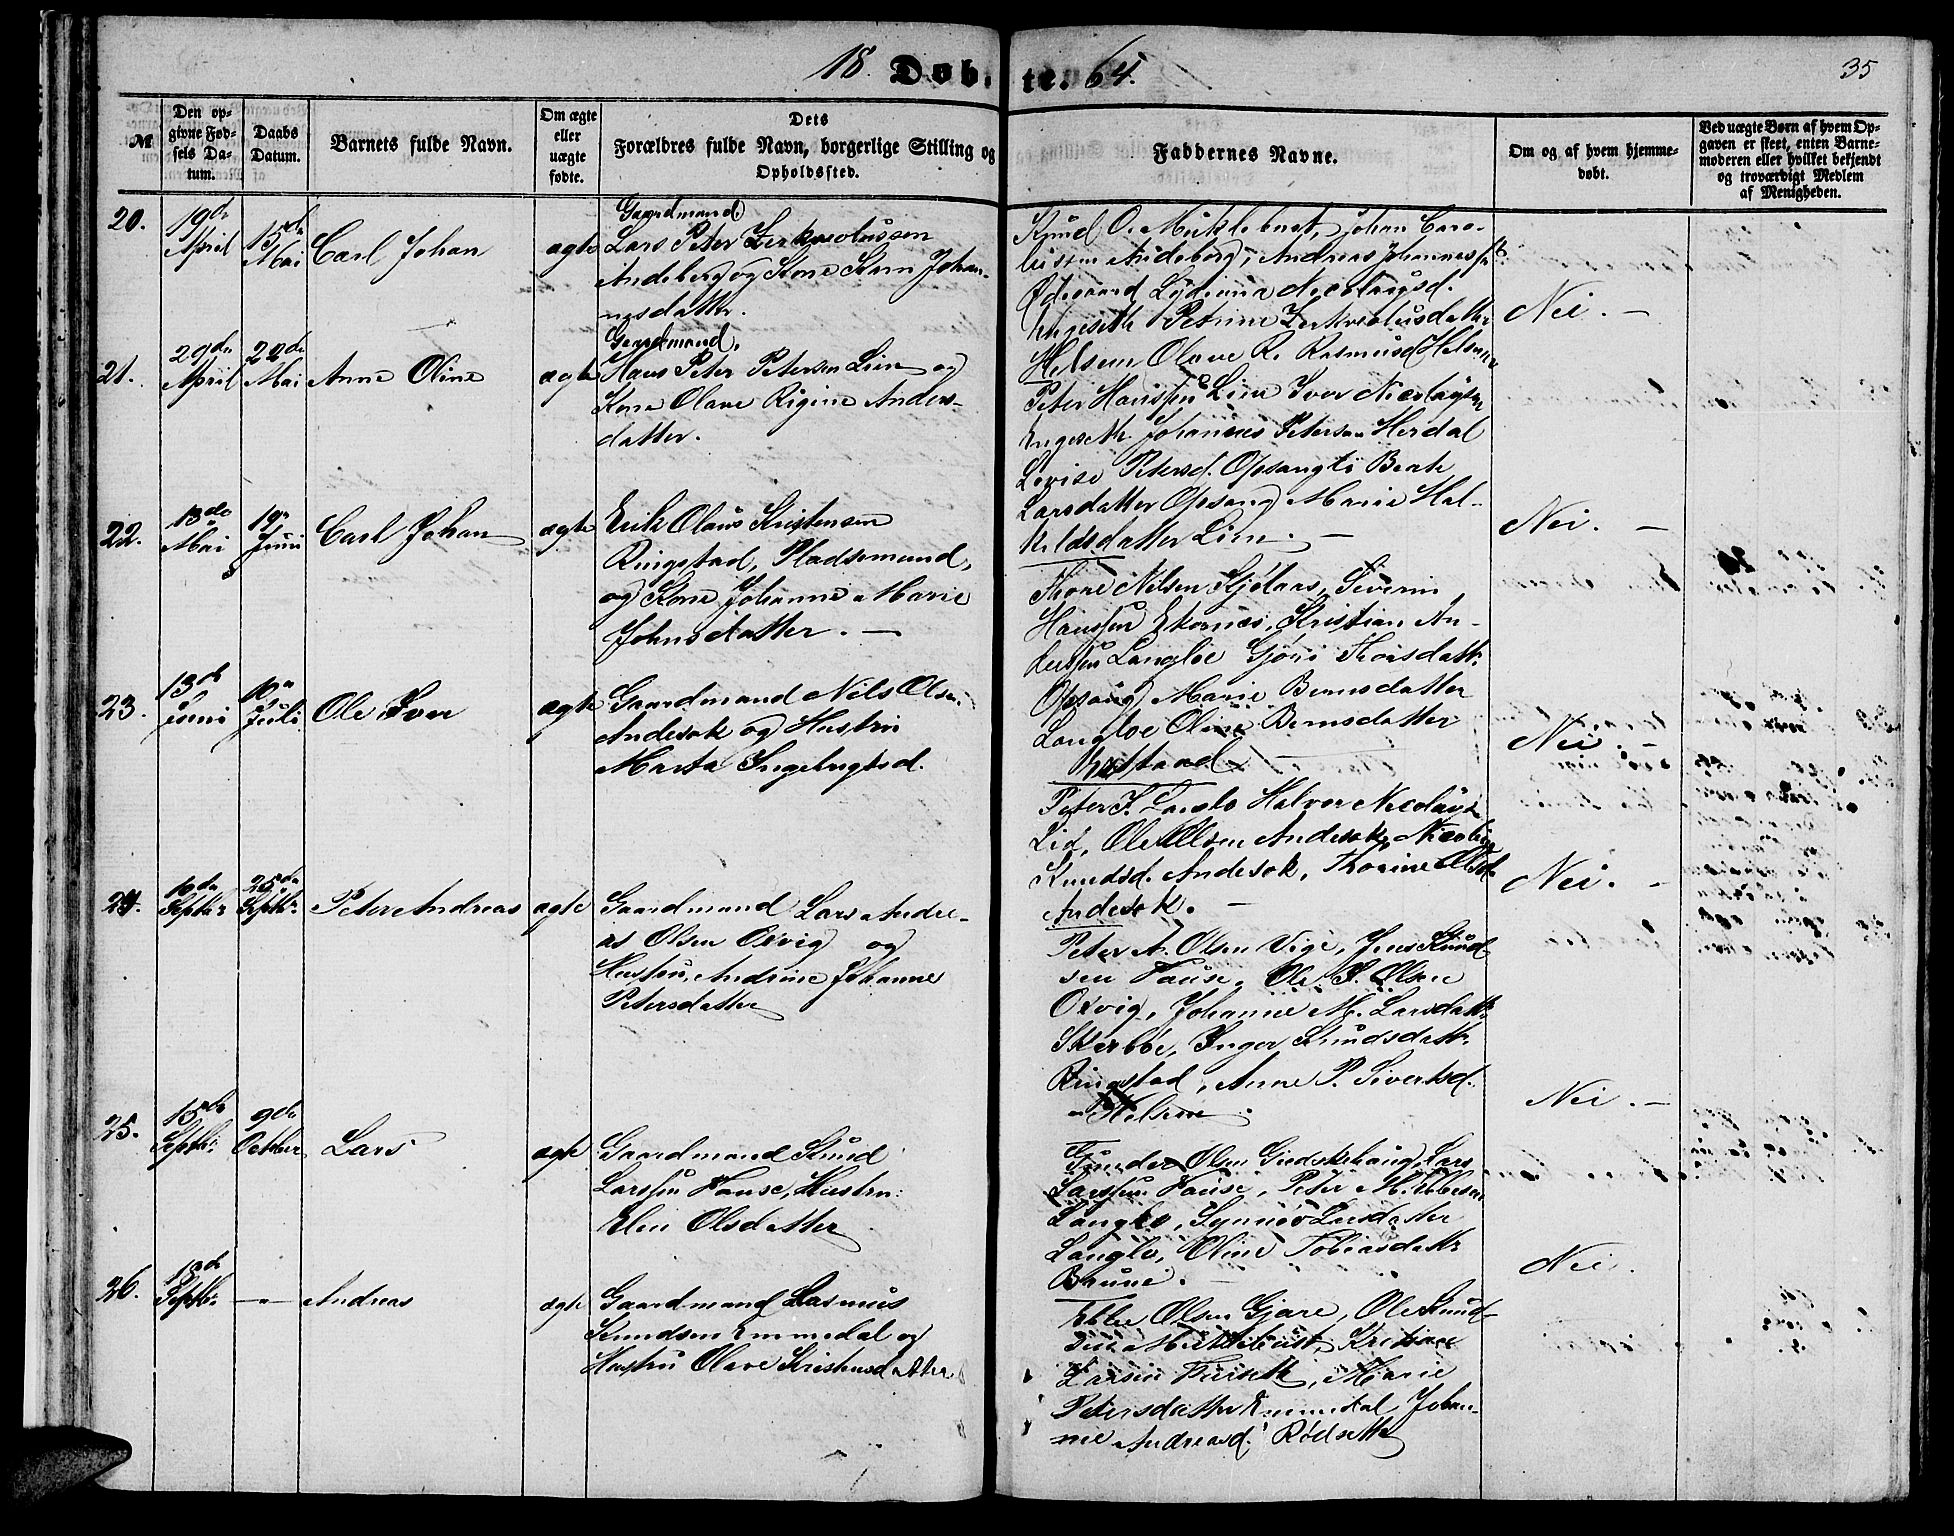 18 Døb. te. 64.
35
№
Den opgivne Fødsels Datum.
Daabs Datum.
Barnets fulde Navn.
Om ægte eller uægte fødte.
Dets Forældres fulde Navn, borgerlige Stilling og Opholdssted.
Faddernes Navne.
Om og af hvem hjemmedøbt.
Ved uægte Børn af hvem Opgaven er skeet, enten Barnemoderen eller hvilket bekjendt og troværdigt Medlem af Menigheden.
20.
19de April
15de Mai
Carl Johan
ægte
Gaardmand
Lars Peter
Andeberg og Kone Johan-
nesdatter.
Knud O. Miklebust, Johan Caro-
liussen Andeberg, Andreas Johanness.
Ødegaard Nicolaysd.
Engeseth Petrine
Helsem Olave R. Rasmusd Helsem
Nei. —
21.
29de April
22de Mai
Anne Oline
ægte
Gaardmand,
Hans Peter Petersen Lien og
Kone Olave Rigine Anders-
datter.
Peter Hanssen Lien Iver Nicolaysen
Engeseth Johannes Petersen Herdal
Lovise Petersd. Opsanglö Berte
Larsdatter Opsang Marie Hal-
kildsdatter Lien. —
Nei. —
22.
13de Mai
19de Juni
Carl Johan
ægte
Erik Olaus Kristensen
Ringstad, Pladsemand,
og Kone Johanne Marie
Johnsdatter. —
Thore Nilsen Stjölaas, Severin
Hanssen Ekornæs, Kristian An-
derssen Langlöe Gjöri
Opsang Marie Berntsdatter
Langloe Oline Berntsdatter
Nei. —
23.
13de Juni
10de Juli
Ole Iver
ægte
Gaardmand Nils Olsen
Andesok og Hustru
Marta Ingebrigtsd.
Peter J. Langlo Halvor Nicolays.
Lid, Ole Olsen Andesok, Nicoline
Knudsd. Andesok, Thorine Olsd.
Andesok. —
Nei. —
24.
Septbr
25de Septbr.
Peter Andreas
ægte
Gaardmand Lars Andre-
as Olsen Overvig og
Hustru, Andrine Johanne
Petersdatter
Peter A. Olsen Vige, Jens Knud-
sen Hause, Ole S. Olsen
Johanne M. Larsdatt.
Skarboe, Inger Knudsdatt.
Ringstad, Anne P. Sivertsd.
Helsem.
Nei. —
25.
15de Septbr.
9de October
Lars
ægte
Gaardmand Knud
Larssen Hause, Hustru:
Elen Olsdatter
Gunder Olsen Lars
Larssen Hause, Peter M. Ebbesen
Langlo, Synnöv Larsdatter
Langlo, Oline Tobiasdatt.
Brune. —
Nei.
26.
Septbr.
— " —
Andreas
ægte
Gaardmand Rasmus
Knudsen Emmedal og
Hustru Olave Kristensdatter
Ebbe Olsen Gjære, Ole Knud-
sen Mikkelbust,
Larsen Furseth, Marie
Petersdatter Emmedal, Johan-
ne Andreasd. Rödseth